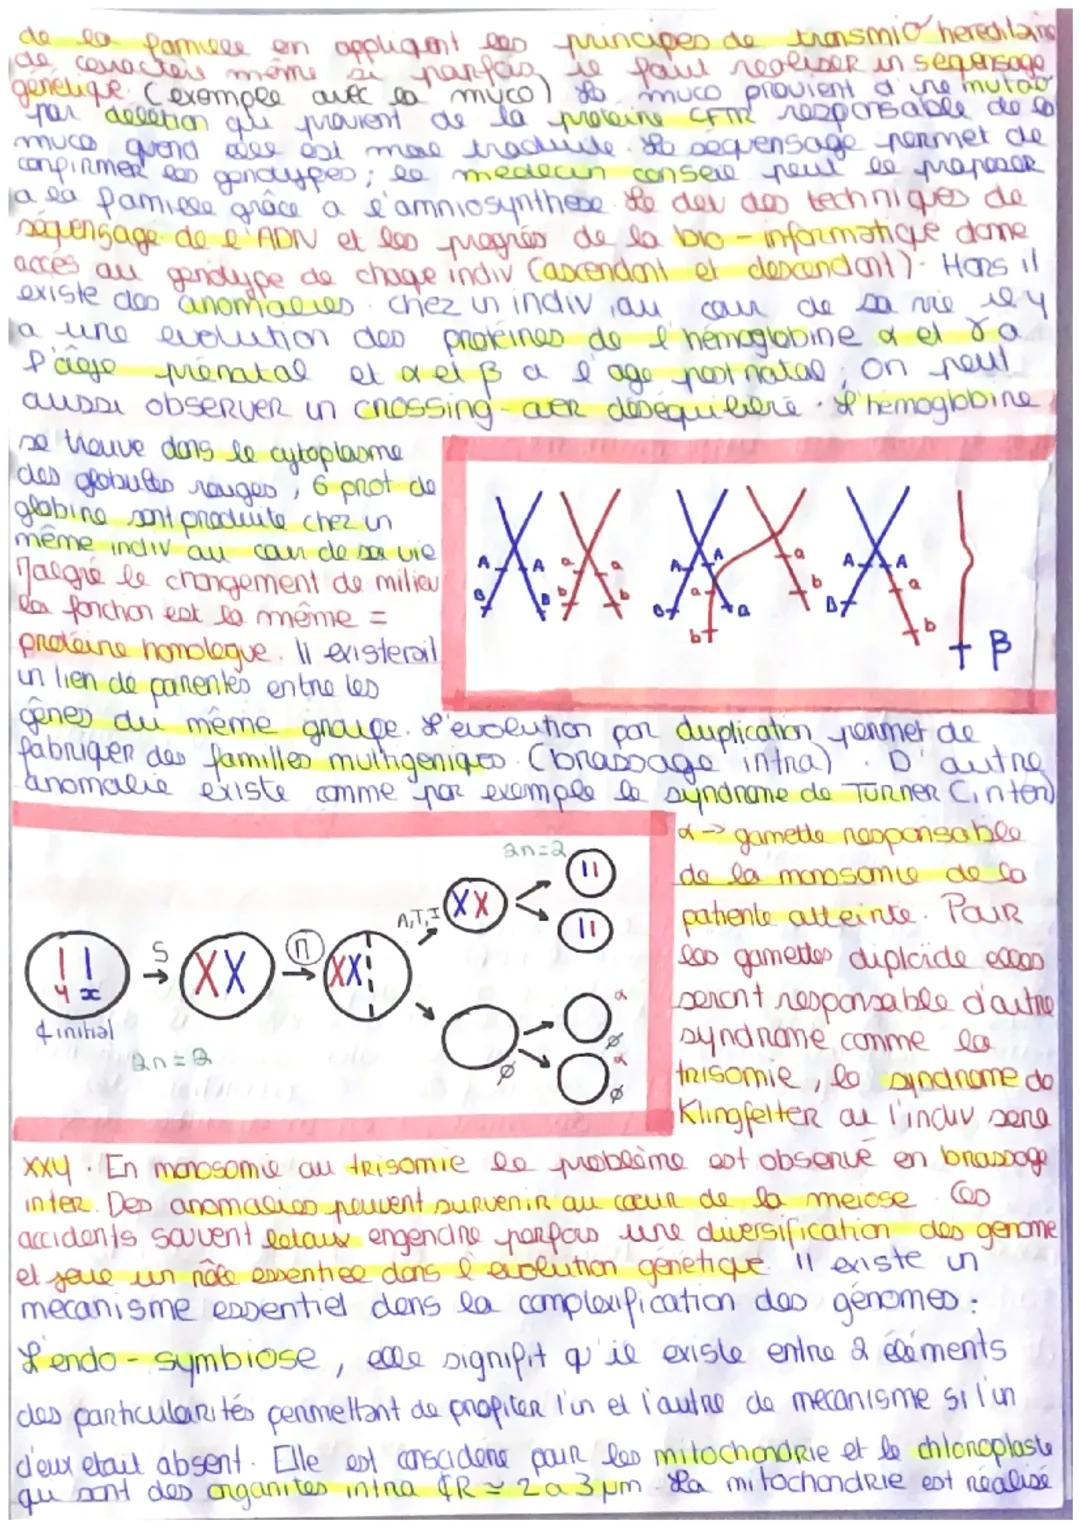 de la famille en appliquant les principes de transmio° hereditaire
de caractère même si parfois il faut realiser un séquensage
génétique. (exemple avec la muco) La muco provient d'une mutao°
par délétion qui provient de la protéine CFTR responsable de la
muco quand elle est male traduite. Le sequensage permet de
confirmer les génotypes ; le medecin conseil peut le proposer
a la famille grâce a l'amniosynthese. Le dev des techniques de
séquençage de l'ADN et les progrés de la bio-informatique donne
accés au génotype de chaque indiv (ascendant et descendant). Hors il
existe des anomalies. chez un indiv, au cour de sa vie il y
a une evolution des protéines de l'hémoglobine α et γ a
l'âge prénatal et α et β a l'age post natal ; On peut
aussi observer un crossing-over déséquilibré. L'hémoglobine
se trouve dans le cytoplasme
des globules rouges, 6 prot de
globine sont produite chez un
même indiv au cour de sa vie
Malgré le changement de milieu
la fonction est la même =
protéine homologue. Il existerait
un lien de parentés entre les
A A a a
B B b b
A A a
a
B b a b
A A a
B b β
gênes du même groupe. L'évolution par duplication permet de
fabriquer des familles multigéniques (brassage intra). D'autre
anomalie existe comme par exemple le syndrome de TURNER (inter)
α → gamette responsable
de la monosomie de la
patiente atteinte. Pour
les gamettes diploïde elles
seront responsable d'autre
syndrome comme la
trisomie, le syndrome de
Klingfelter ou l'indiv sera
2n=2
A,T,I
S
M
y x
¢ initial
2n=2
α
∅
α
∅ ∅
xxy. En monosomie ou trisomie le problème est observé en brassage
inter. Des anomalies peuvent survenir au cœur de la meiose. Ces
accidents souvent letaux engendre parfois une diversification des genome
et joue un rôle essentiel dans l'évolution génétique. Il existe un
mecanisme essentiel dans la complexification des génomes :
L'endo-symbiose, elle signifit qu'il existe entre 2 éléments
des particularités permettant de profiter l'un et l'autre de mecanisme si l'un
d'eux etait absent. Elle est considéré pour les mitochondrie et le chloroplaste
qui sont des organites intra ¢R ≃ 2 a 3 μm. La mitochondrie est réalisé